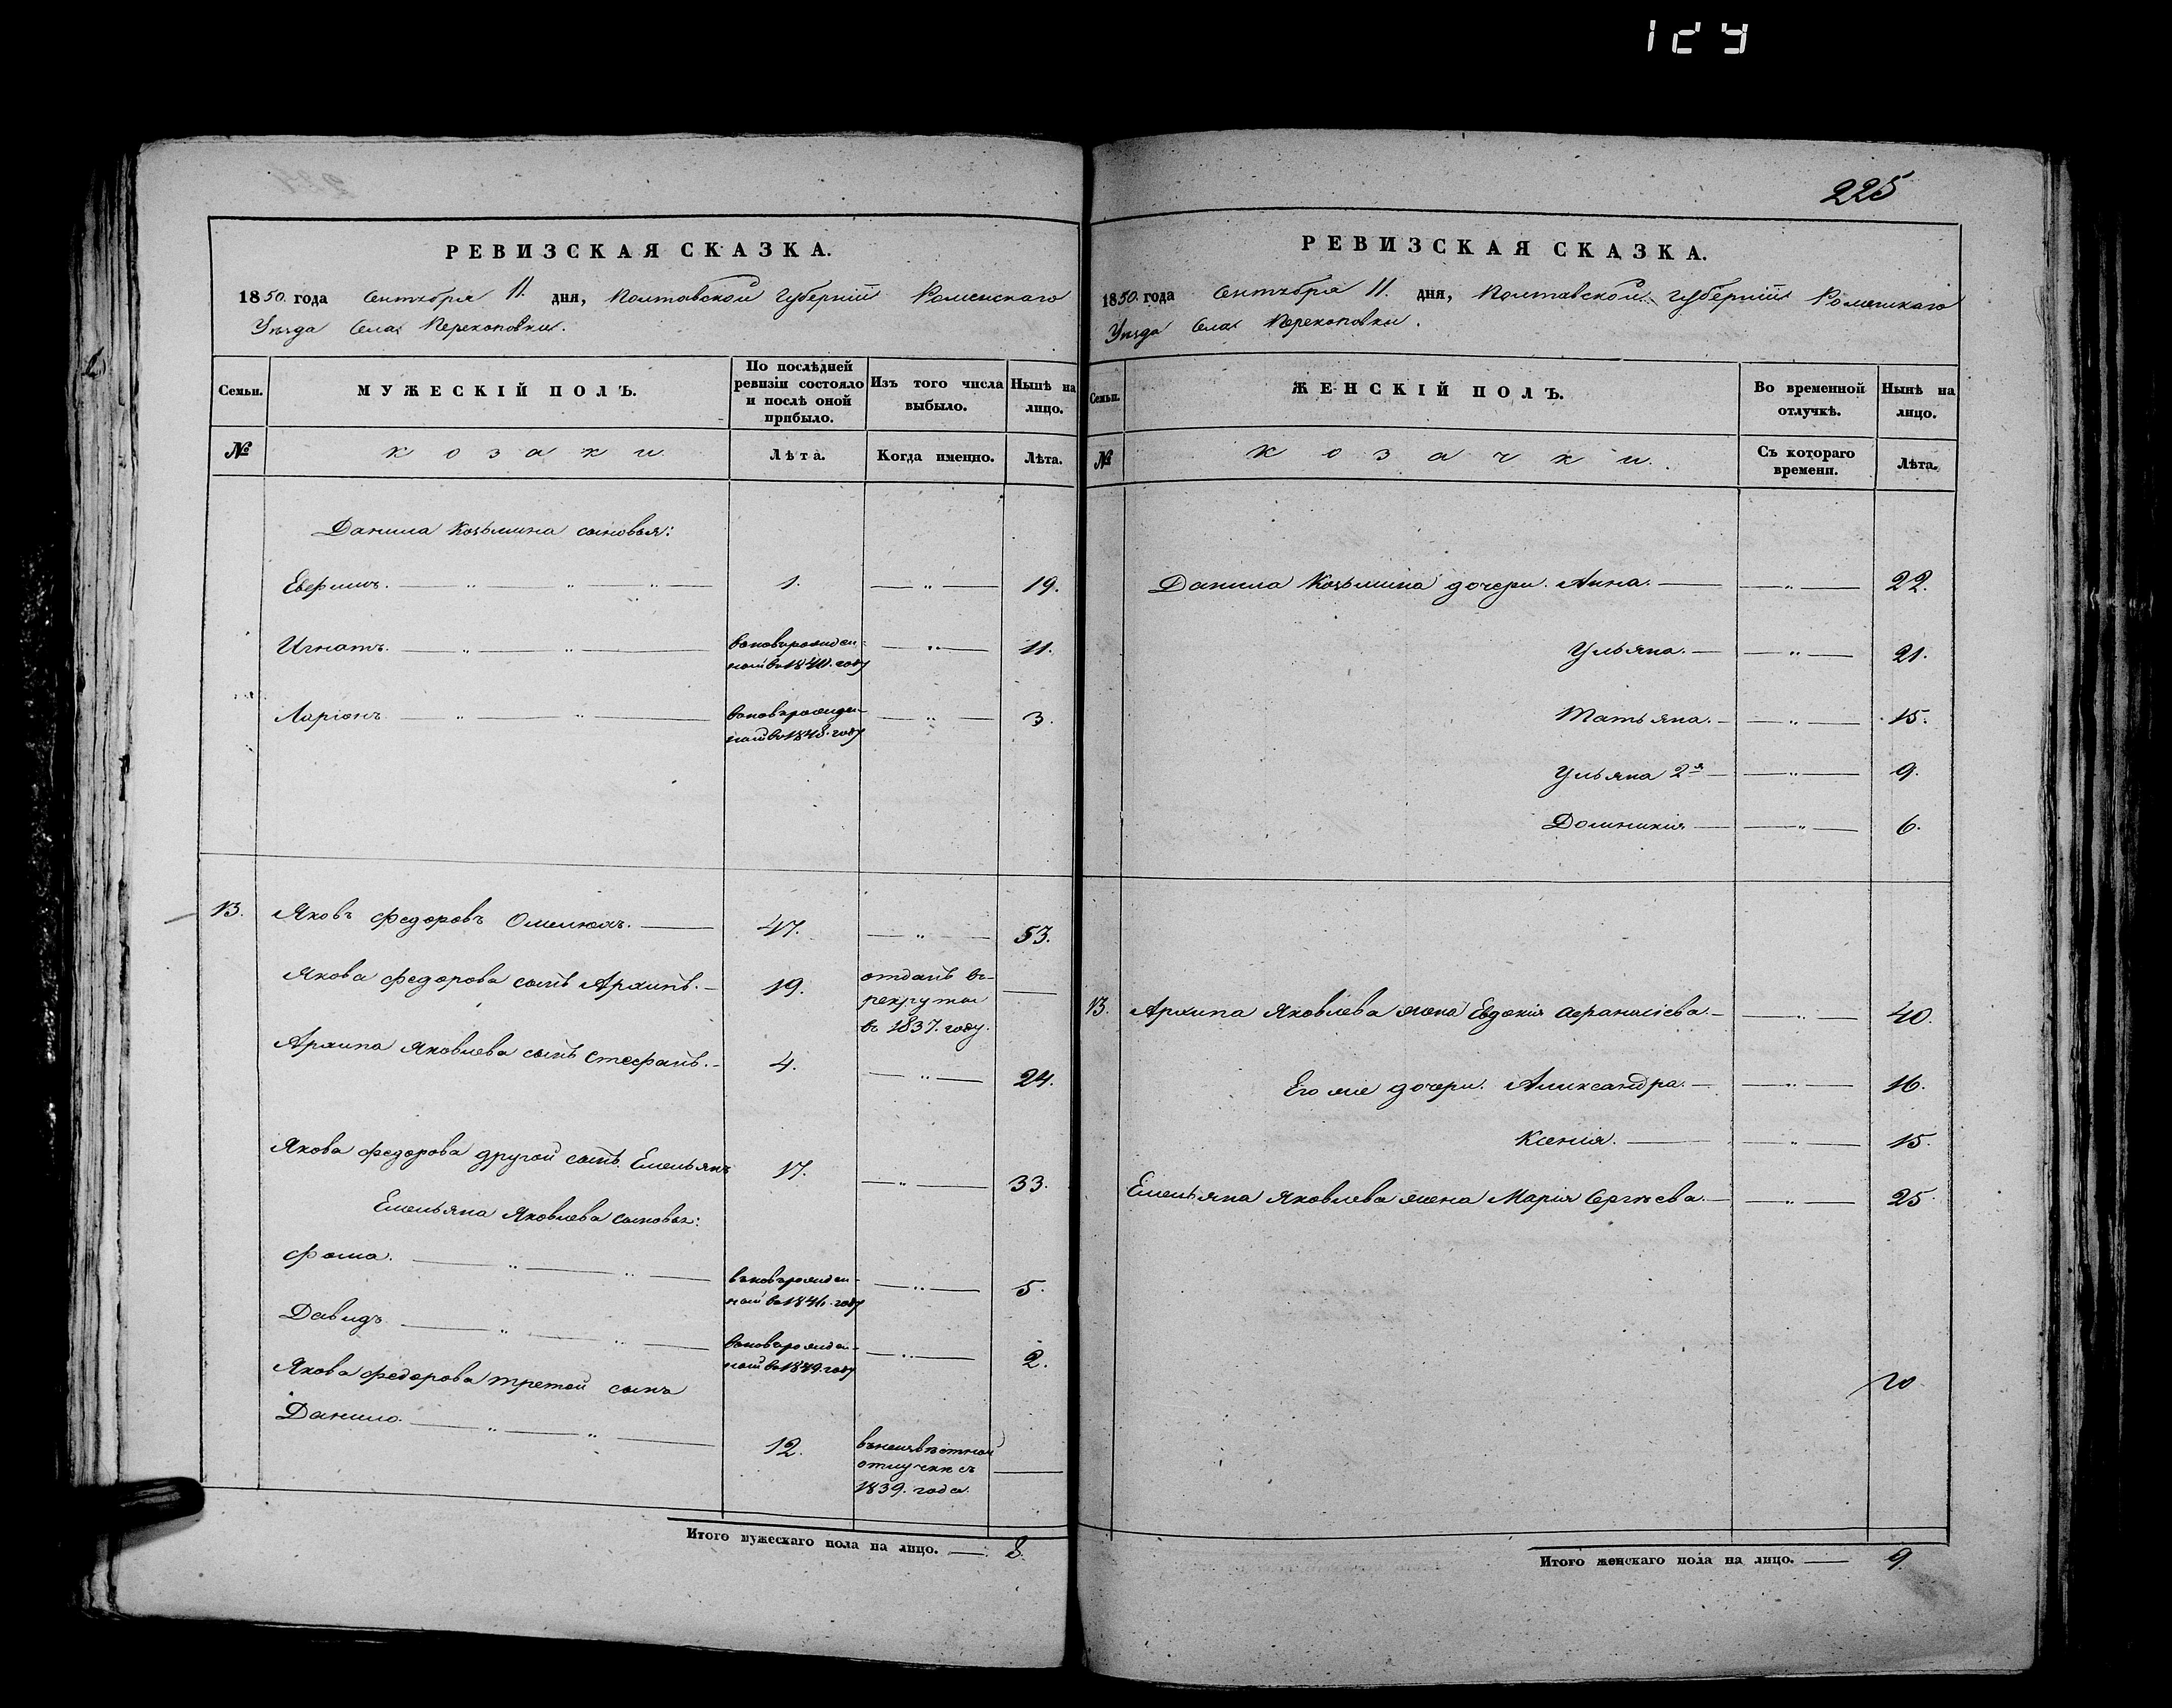 225
РЕВИЗСКАЯ СКАЗКА.
1850. года Сентября 11. дня, Полтавской Губерніи Роменскаго
Уѣзда Села Перекоповки.
Семьи. МУЖЕСКІЙ ПОЛЪ. По послѣдней ревизіи состояло и послѣ оной прибыло. Изъ того числа выбыло. Нынѣ на лицо.
№ козаки Лѣта. Когда именно. Лѣта.
Данила Козьмина сыновья:
1. 19.
Игнатъ. 11.
Ларіонъ 3.
13. Яковъ Федоровъ 47. 53.
Якова Федорова сынъ Архипъ. 19. отданъ въ
рекруты
въ 1837. году.
Архипа Яковлева сынъ Стефанъ. 4. 24.
Якова Федорова другой сынъ. Емельянъ 17. 33.
Емельяна Яковлева сыновья:
Фома. 5.
Давидъ 2.
Якова Федорова третой сынъ
Данило. 12. въ неизвѣстной
отлучкѣ съ
1839. года.
Итого мужескаго пола на лицо. 8.
РЕВИЗСКАЯ СКАЗКА.
1850. года Сентября 11. дня, Полтавской Губерніи Роменскаго
Уѣзда Села Перекоповки.
Семьи. ЖЕНСКІЙ ПОЛЪ. Во временной отлучкѣ. Нынѣ на лицо.
№ козачки. Съ котораго времени. Лѣта.
Данила Козьмина дочери. Анна. 22.
Ульяна. 21.
Татьяна. 15.
Ульяна 2я 9.
Домникія 6.
13. Архипа Яковлева жена Евдокія Афанасіева. 40.
Его же дочери. Александра. 16.
Ксенія. 15.
Емельяна Яковлева жена Марія Сергѣева. 25.
Итого женскаго пола на лицо. 9.